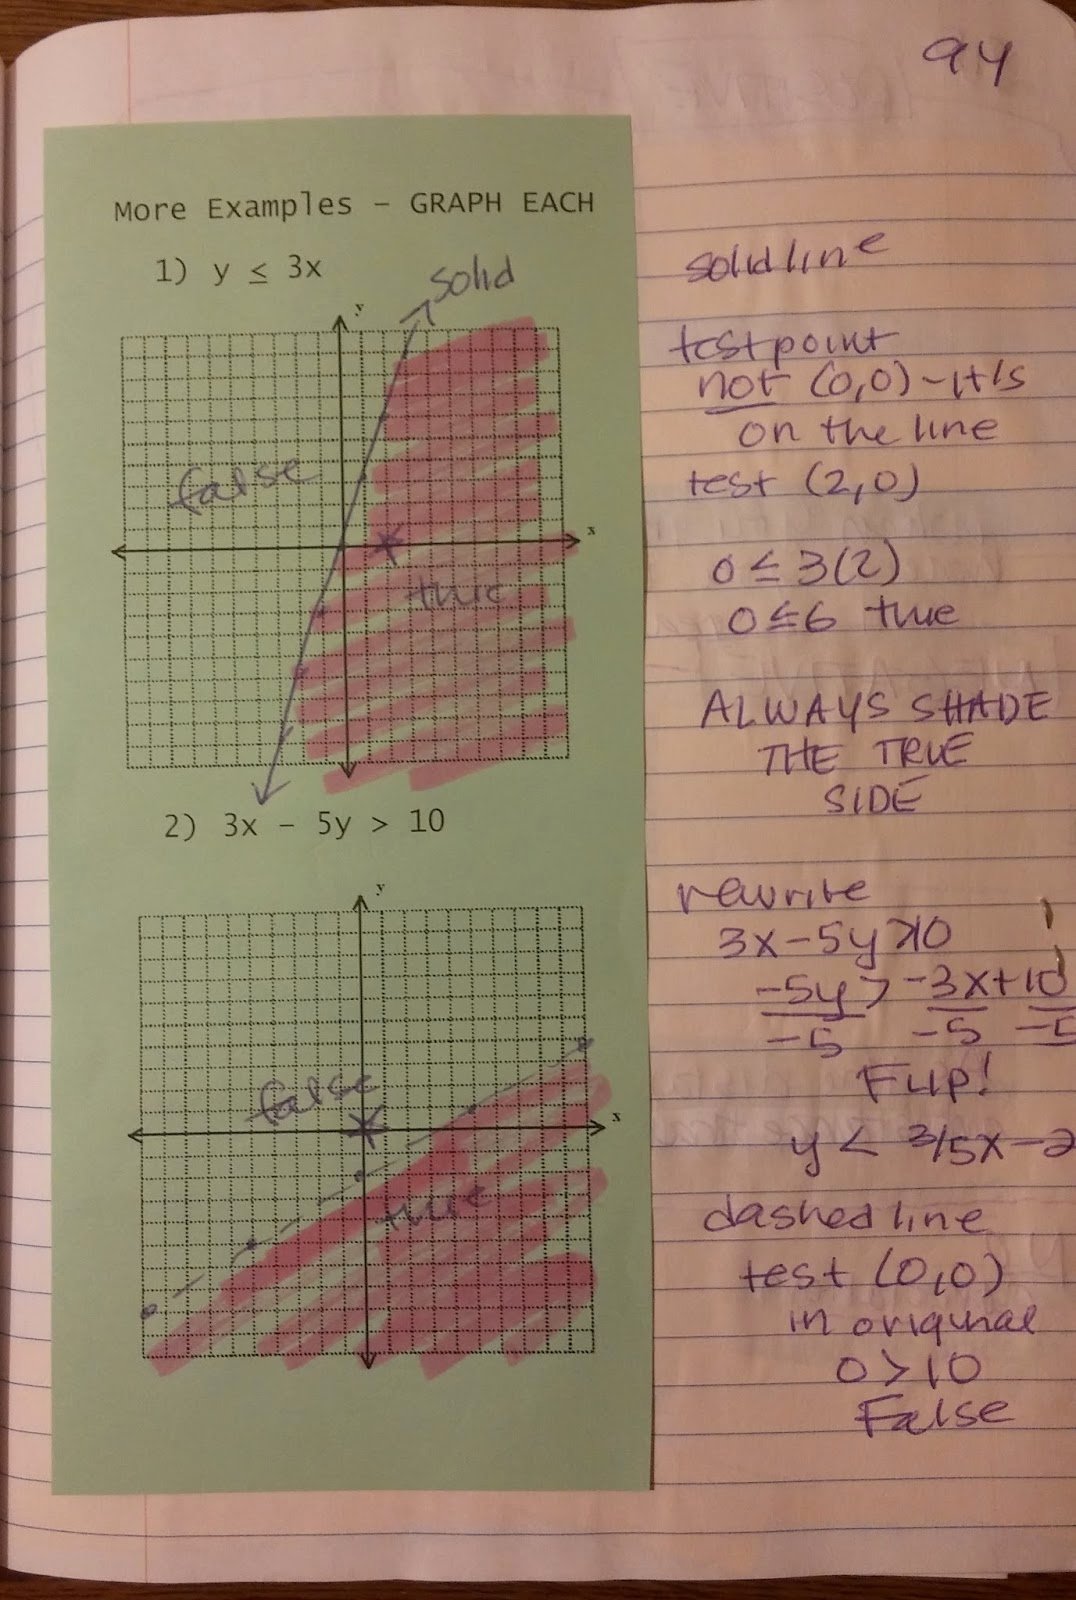 94
More Examples – GRAPH EACH
1) y ≤ 3x
solid
y
x
false
true
2) 3x – 5y > 10
y
x
false
true
solid line
test point
not (0,0) - it's
on the line
test (2,0)
0 ≤ 3(2)
0 ≤ 6 true
ALWAYS SHADE
THE TRUE
SIDE
rewrite
3x - 5y > 10
-5y > -3x + 10
-5 -5 -5
Flip!
y < 3/5x - 2
dashed line
test (0,0)
in original
0 > 10
False